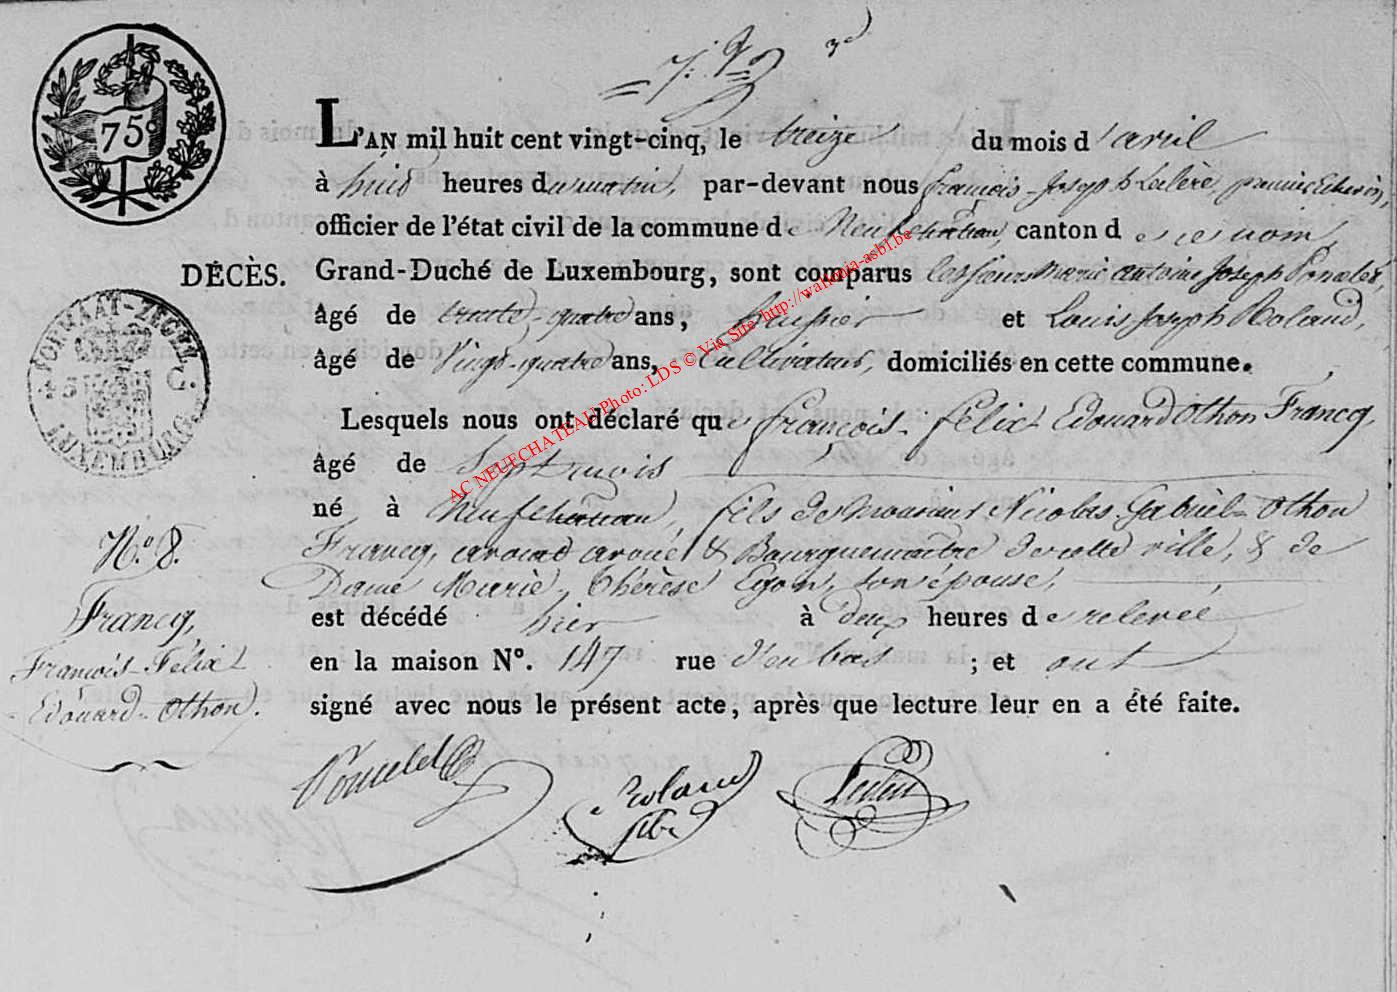 75c
L'AN mil huit cent vingt-cinq, le treize du mois d'avril
à huit heures du matin, par-devant nous François-Joseph premier Echevin,
officier de l'état civil de la commune de Neufchateau, canton de ce nom,
DÉCÈS.
Grand-Duché de Luxembourg, sont comparus les sieurs Marie Antoine Joseph
âgé de trente-quatre ans, huissier et Louis Joseph Roland,
âgé de vingt-quatre ans, Cultivateur, domiciliés en cette commune.
FORMAAT-ZEGEL
LUXEMBURG
Lesquels nous ont déclaré que François-Félix Edouard Othon Francq,
âgé de Sept mois
né à Neufchateau, fils de monsieur Nicolas-Gabriel-Othon
Francq, avocat avoué & Bourguemaître de cette ville, & de
Dame Marie-Thérèse son épouse,
est décédé hier à deux heures de relevée
en la maison N°. 147 rue d'en bas ; et ont
signé avec nous le présent acte, après que lecture leur en a été faite.
N.° 8.
Francq,
François-Félix
Edouard-Othon.
Roland
AC NEUFCHATEAU Photo: LDS © Via Site http://wallonia-asbl.be